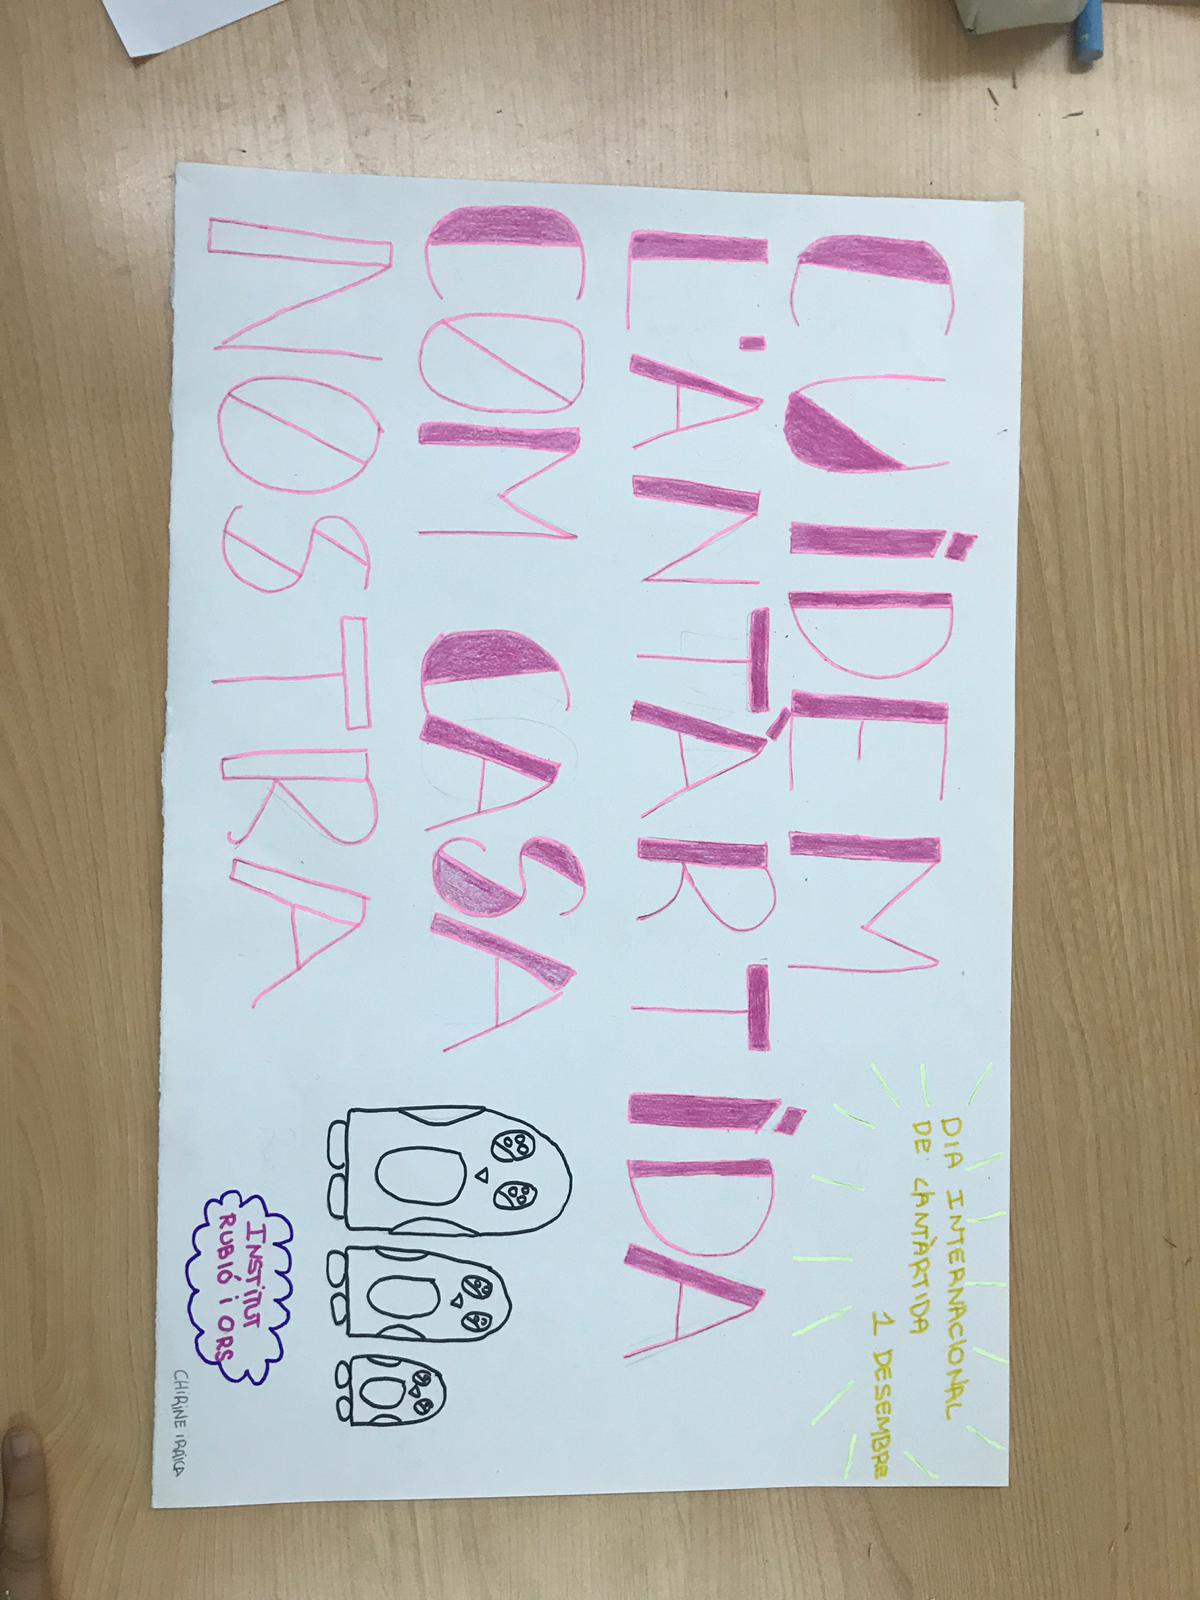 CUiDEM
L'ANTÀRTiDA
COM CASA
NOSTRA
DIA INTERNACIONAL
DE L'ANTÀRTIDA
1 DESEMBRE
INSTiTUT
RUBIÓ i ORS
CHIRINE I RAICA